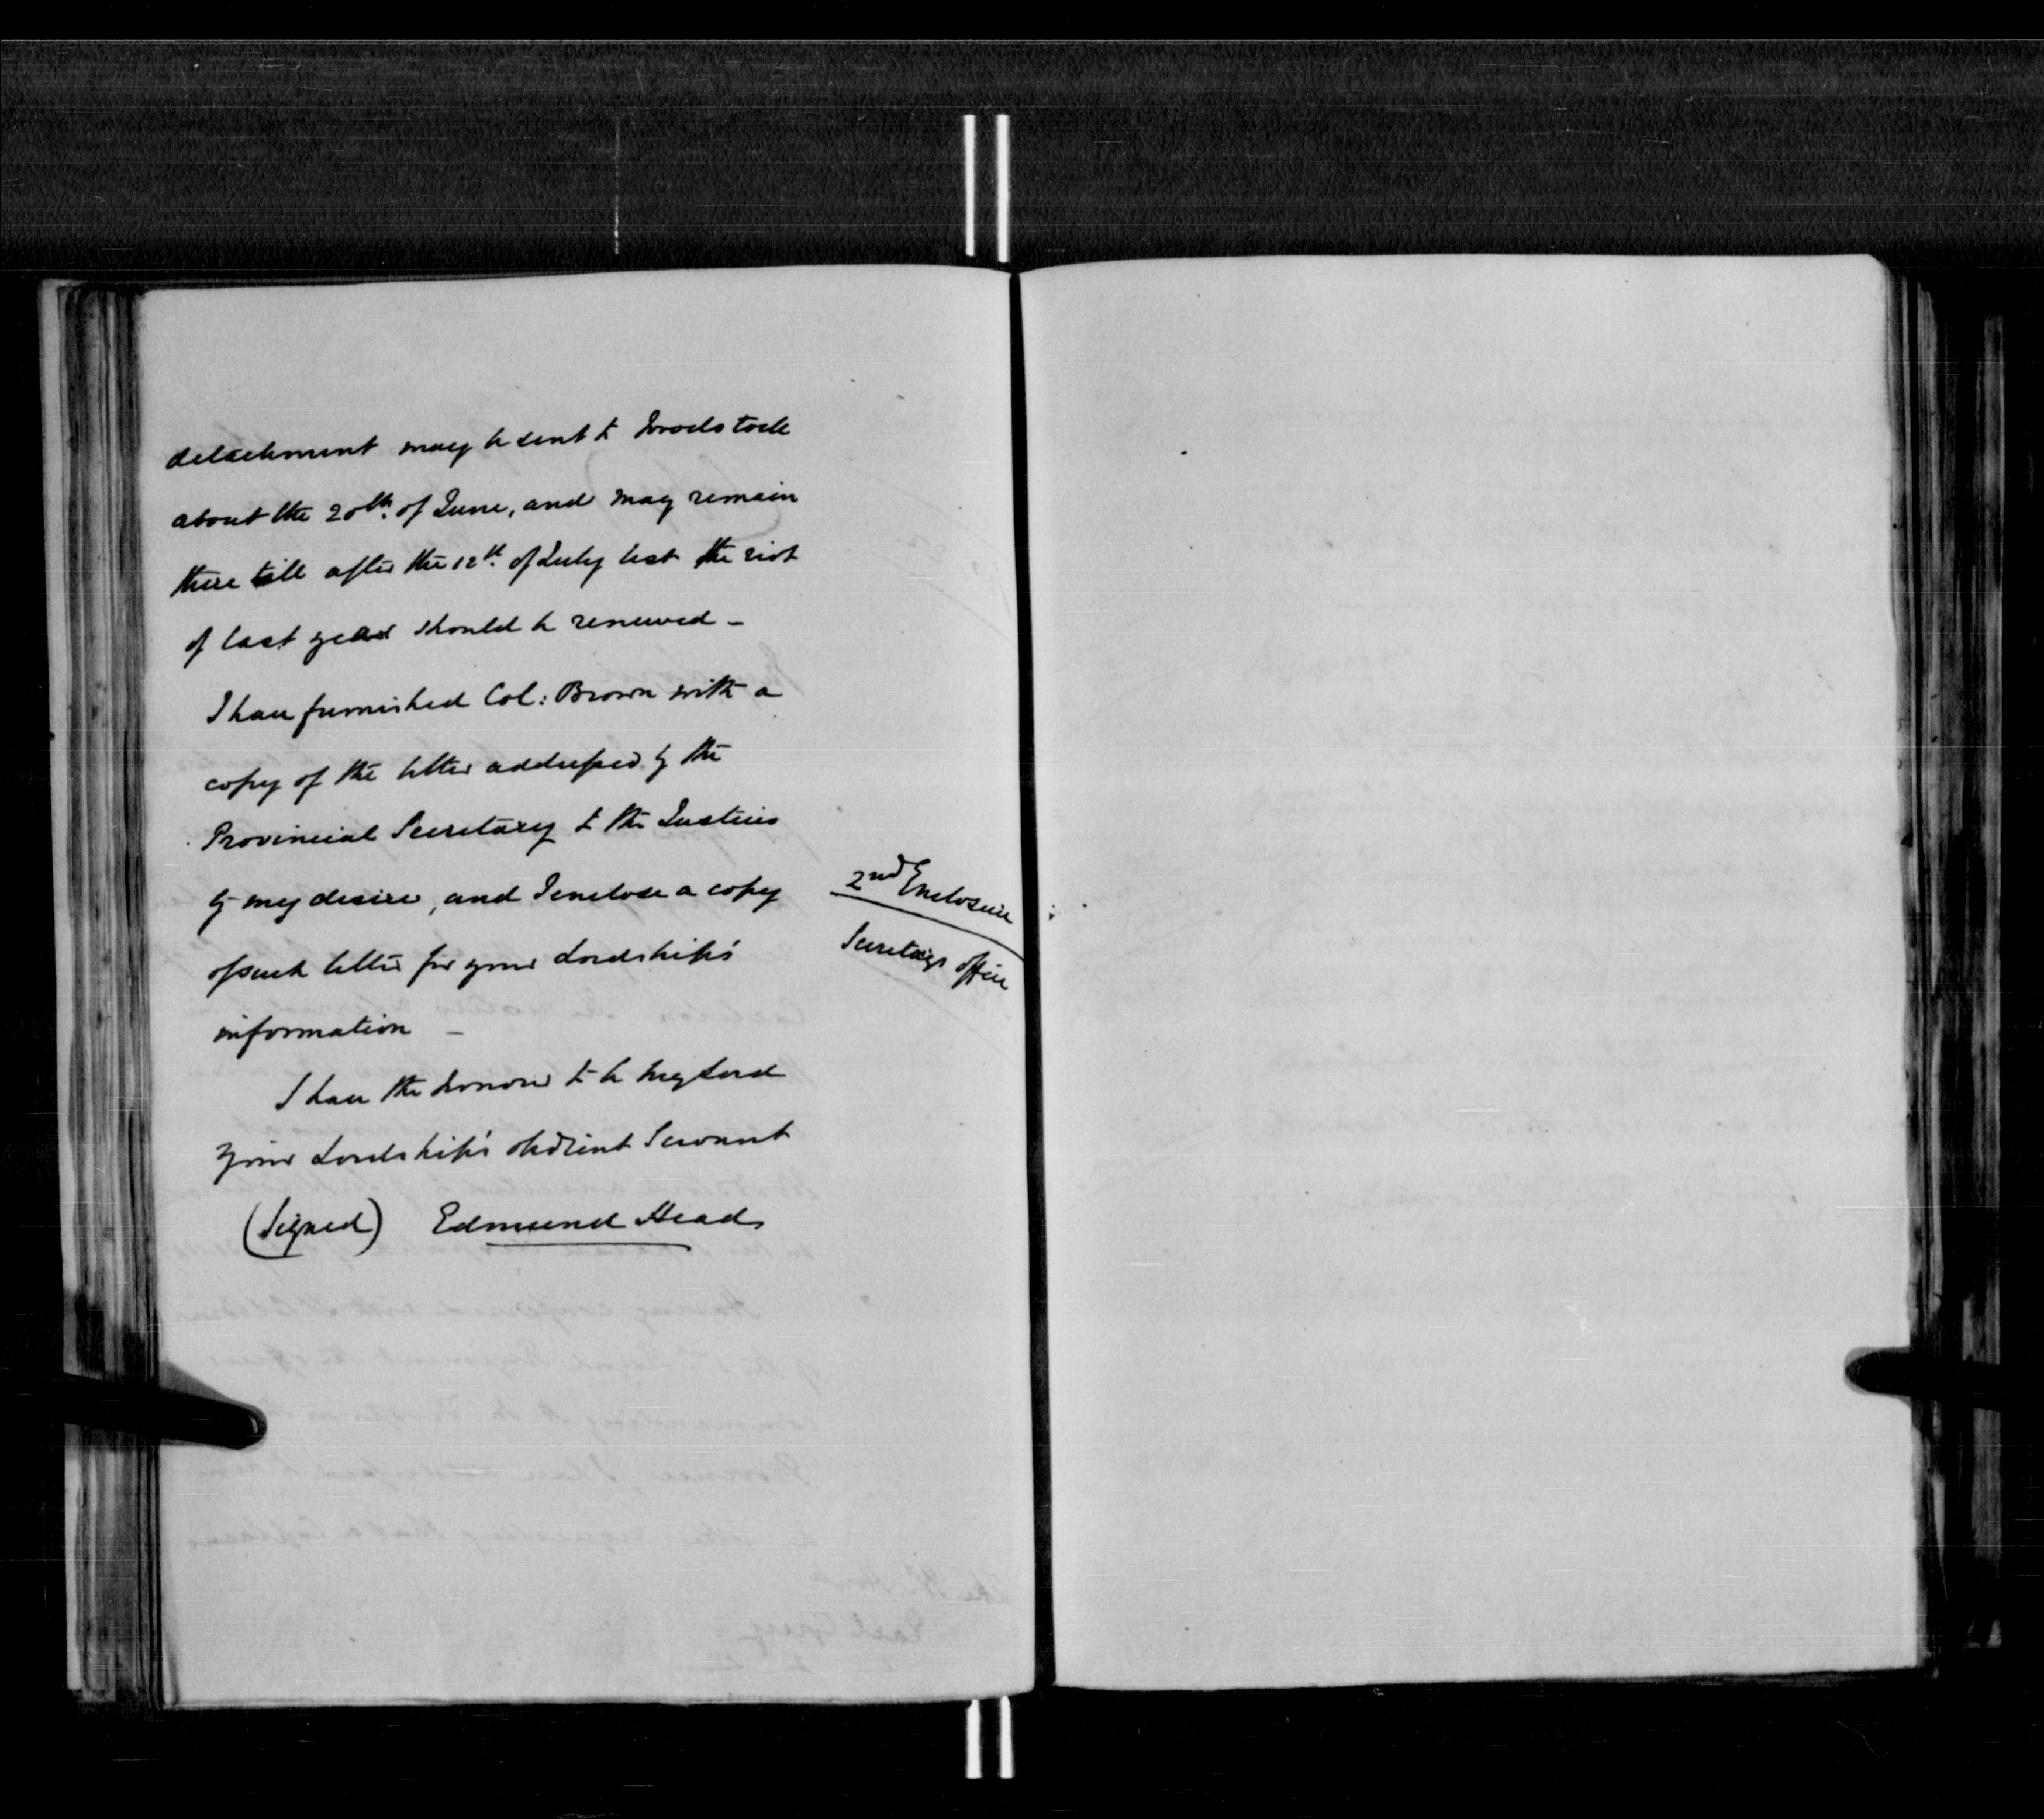 detachment may be sent to Woodstock
about the 20th. of June, and may remain
there till after the 12th. of July lest the riot
of last year should be renewed -
I have furnished Col: Brown with a
copy of the letter addressed by the
Provincial Secretary to the Justices
by my desire, and I enclose a copy
of such letter for your Lordship's
information -
I have the honour to be my Lord
Your Lordship's obedient Servant
(Signed) Edmund Head
2nd Enclosure
Secretarys office